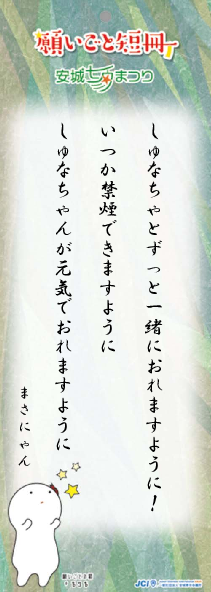 願いごと短冊
安城七夕まつり
しゅなちゃとずっと一緒におれますように!
いつか禁煙できますように
しゅなちゃんが元気でおれますように
まさにゃん
JCI